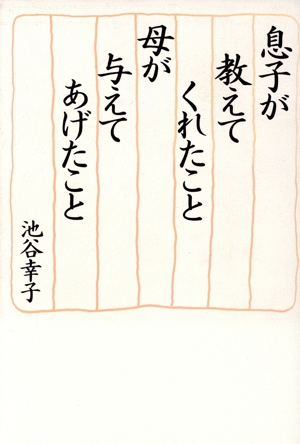 息子が
教えて
くれたこと
母が
与えて
あげたこと
池谷幸子